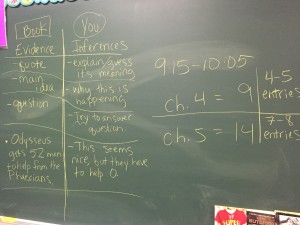 Book
You
Evidence
Inferences
-quote
-explain/guess
it's meaning
-main
idea
-why this is
happening
-question
-Try to answer
question
• Odysseus
gets 52 men
to help from the
Phaecians.
-This seems
nice, but they have
to help O.
9:15-10:05
ch. 4 = 9
4-5
entries
ch. 5 = 14
7-8
entries